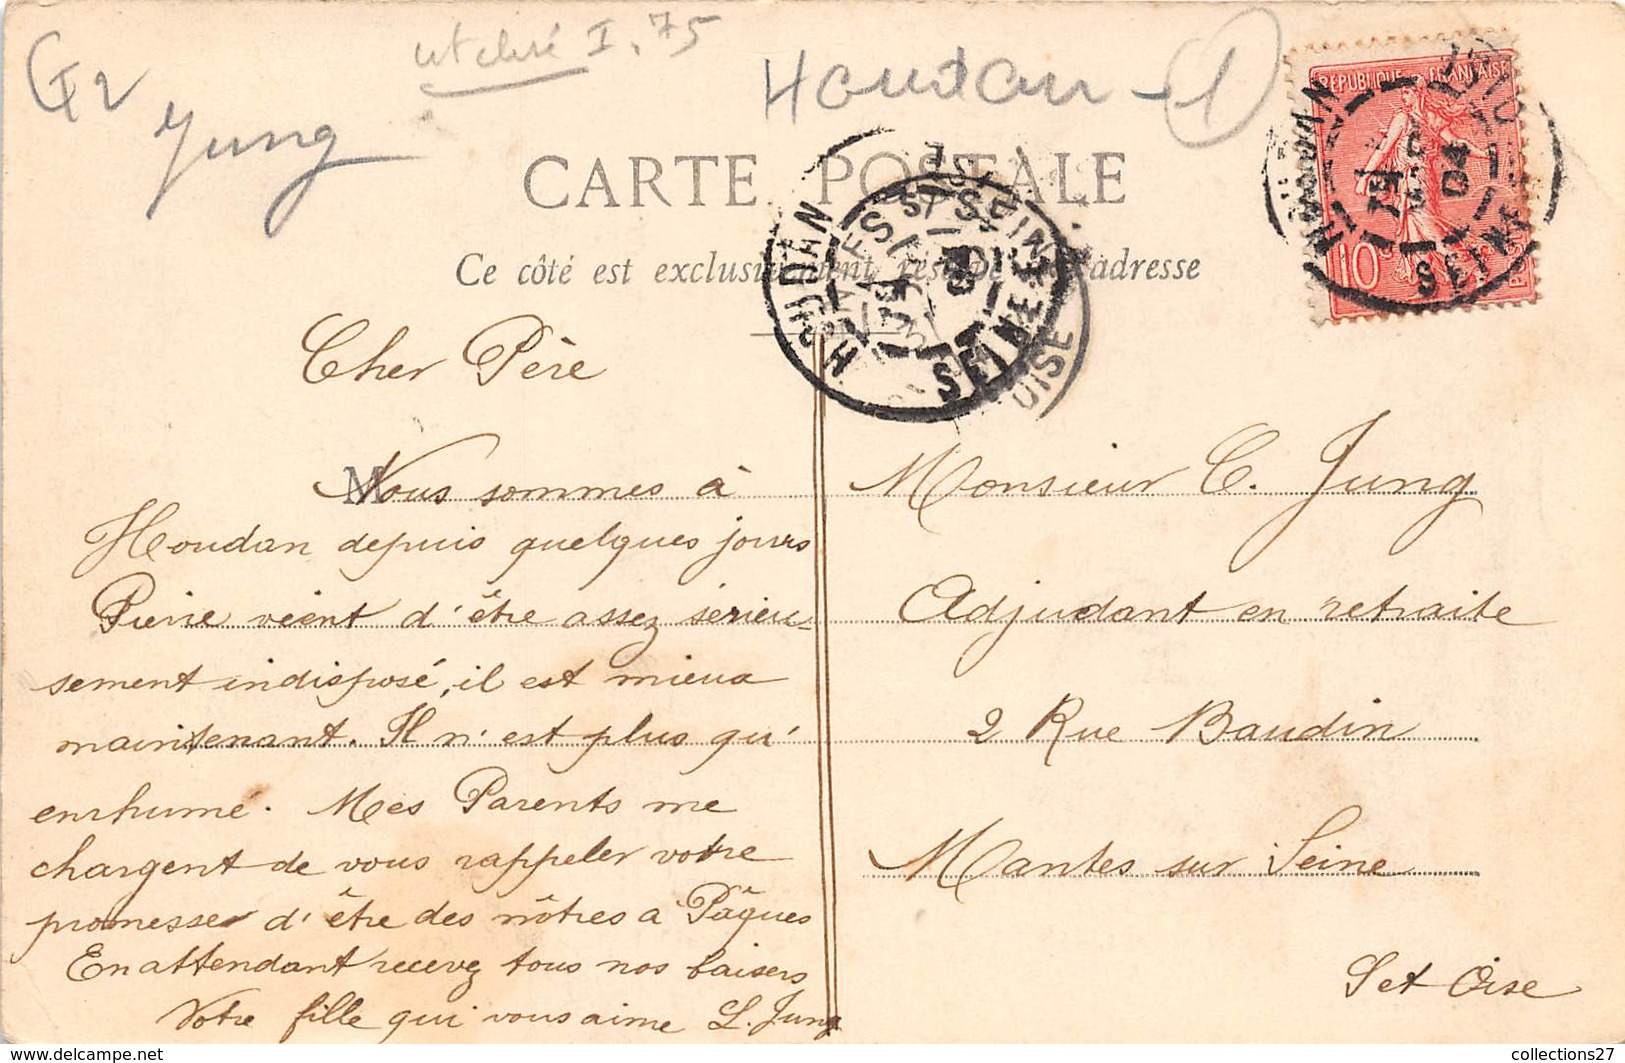 G2
Jung
utilisé I.75
Houdan - 1
CARTE POSTALE
Ce côté est exclusivement réservé à l'adresse
REPUBLIQUE FRANÇAISE
10
HOUDAN
04
SEINE
HOUDAN
SEINE
OISE
Cher Père
M
Nous sommes à
Houdan depuis quelques jours
Pierre vient d'être assez sérieu-
sement indisposé, il est mieux
maintenant. Il n'est plus qu'
enrhumé. Mes Parents me
chargent de vous rappeler votre
promesse d'être des nôtres à Pâques
En attendant recevez tous nos baisers
Votre fille qui vous aime L. Jung
Monsieur C. Jung
Adjudant en retraite
2 Rue Baudin
Mantes sur Seine
S et Oise
collections27
© delcampe.net